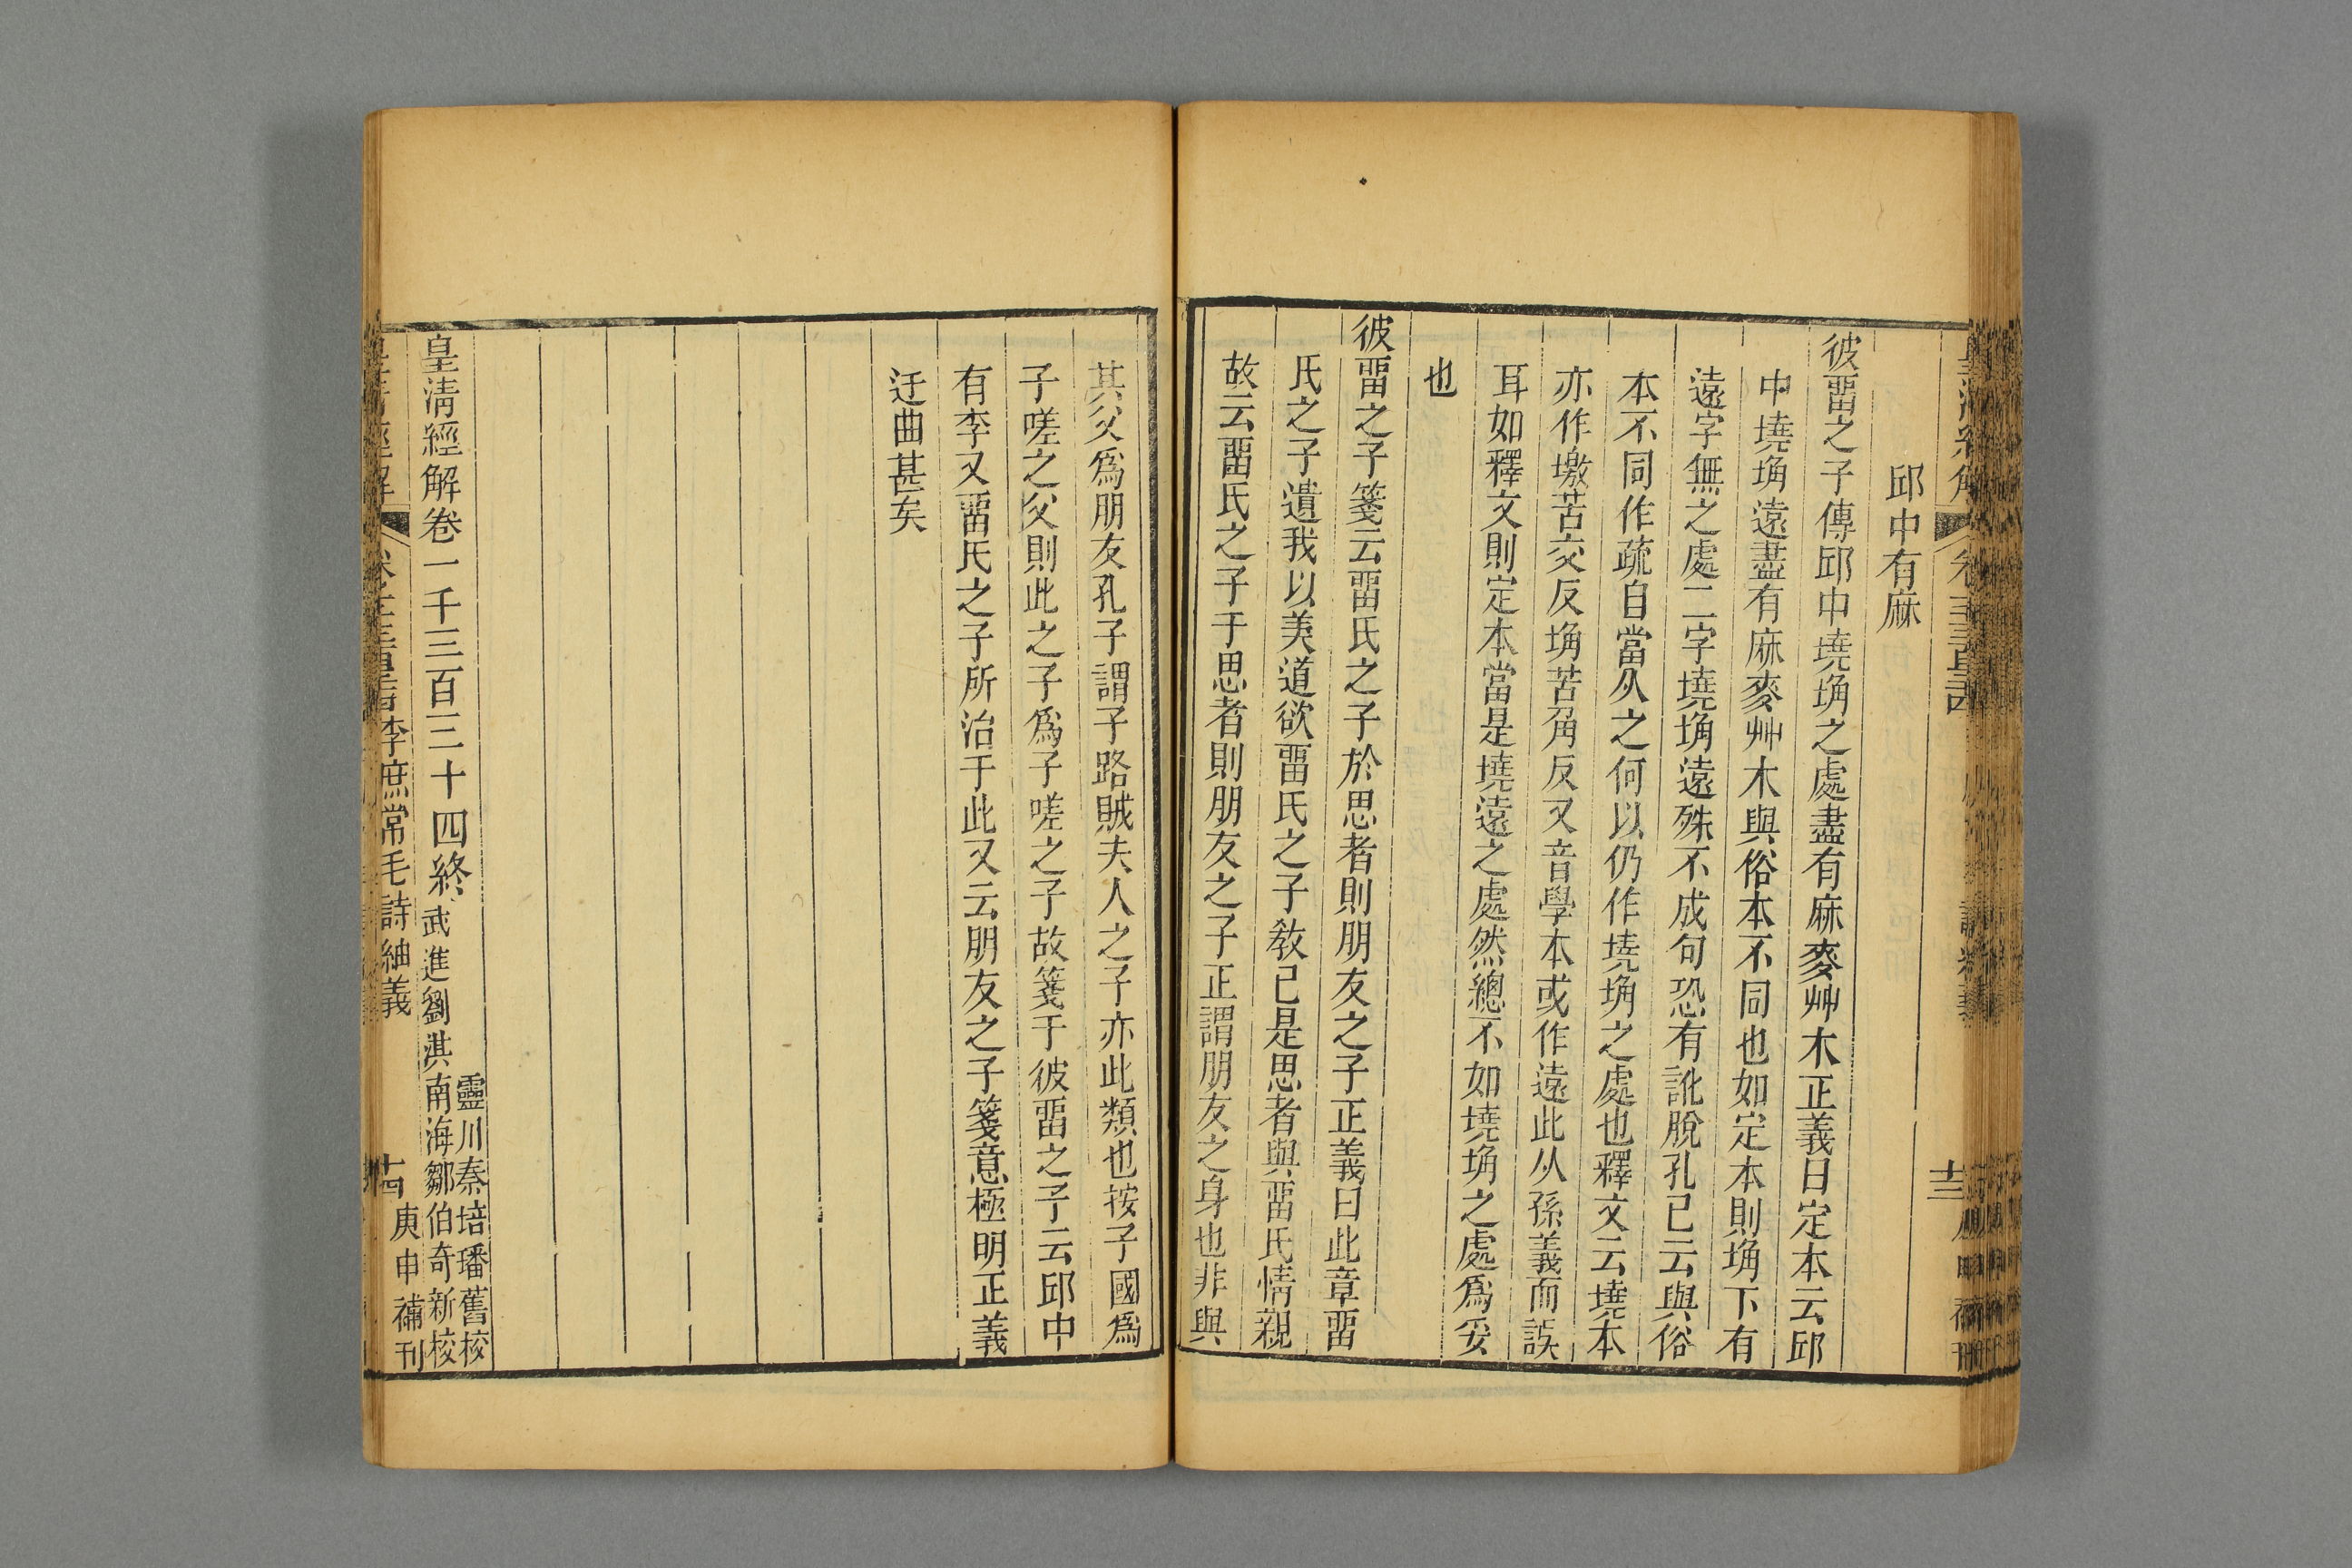 邱中有麻
彼畱之子傳邱中墝埆之處盡有麻麥艸木正義曰定本云邱
中墝埆遠盡有麻麥艸木與俗本不同也如定本則埆下有
遠字無之處二字墝埆遠殊不成句恐有訛脫孔已云與俗
本不同作疏自當从之何以仍作墝埆之處也釋文云墝本
亦作墽苦交反埆苦角反又音學本或作遠此从孫義而誤
耳如釋文則定本當是墝遠之處然總不如墝埆之處爲妥
也
彼畱之子箋云畱氏之子於思者則朋友之子正義曰此章畱
氏之子遺我以美道欲畱氏之子敎己是思者與畱氏情親
故云畱氏之子于思者則朋友之子正謂朋友之身也非與
其父爲朋友孔子謂子路賊夫人之子亦此類也按子國爲
子嗟之父則此之子爲子嗟之子故箋于彼畱之子云邱中
有李又畱氏之子所治于此又云朋友之子箋意極明正義
迂曲甚矣
皇淸經解卷一千三百三十四終
靈川秦培璠舊校
武進劉淇南海鄒伯奇新校
李庶常毛詩紬義
十四
庚申補刊